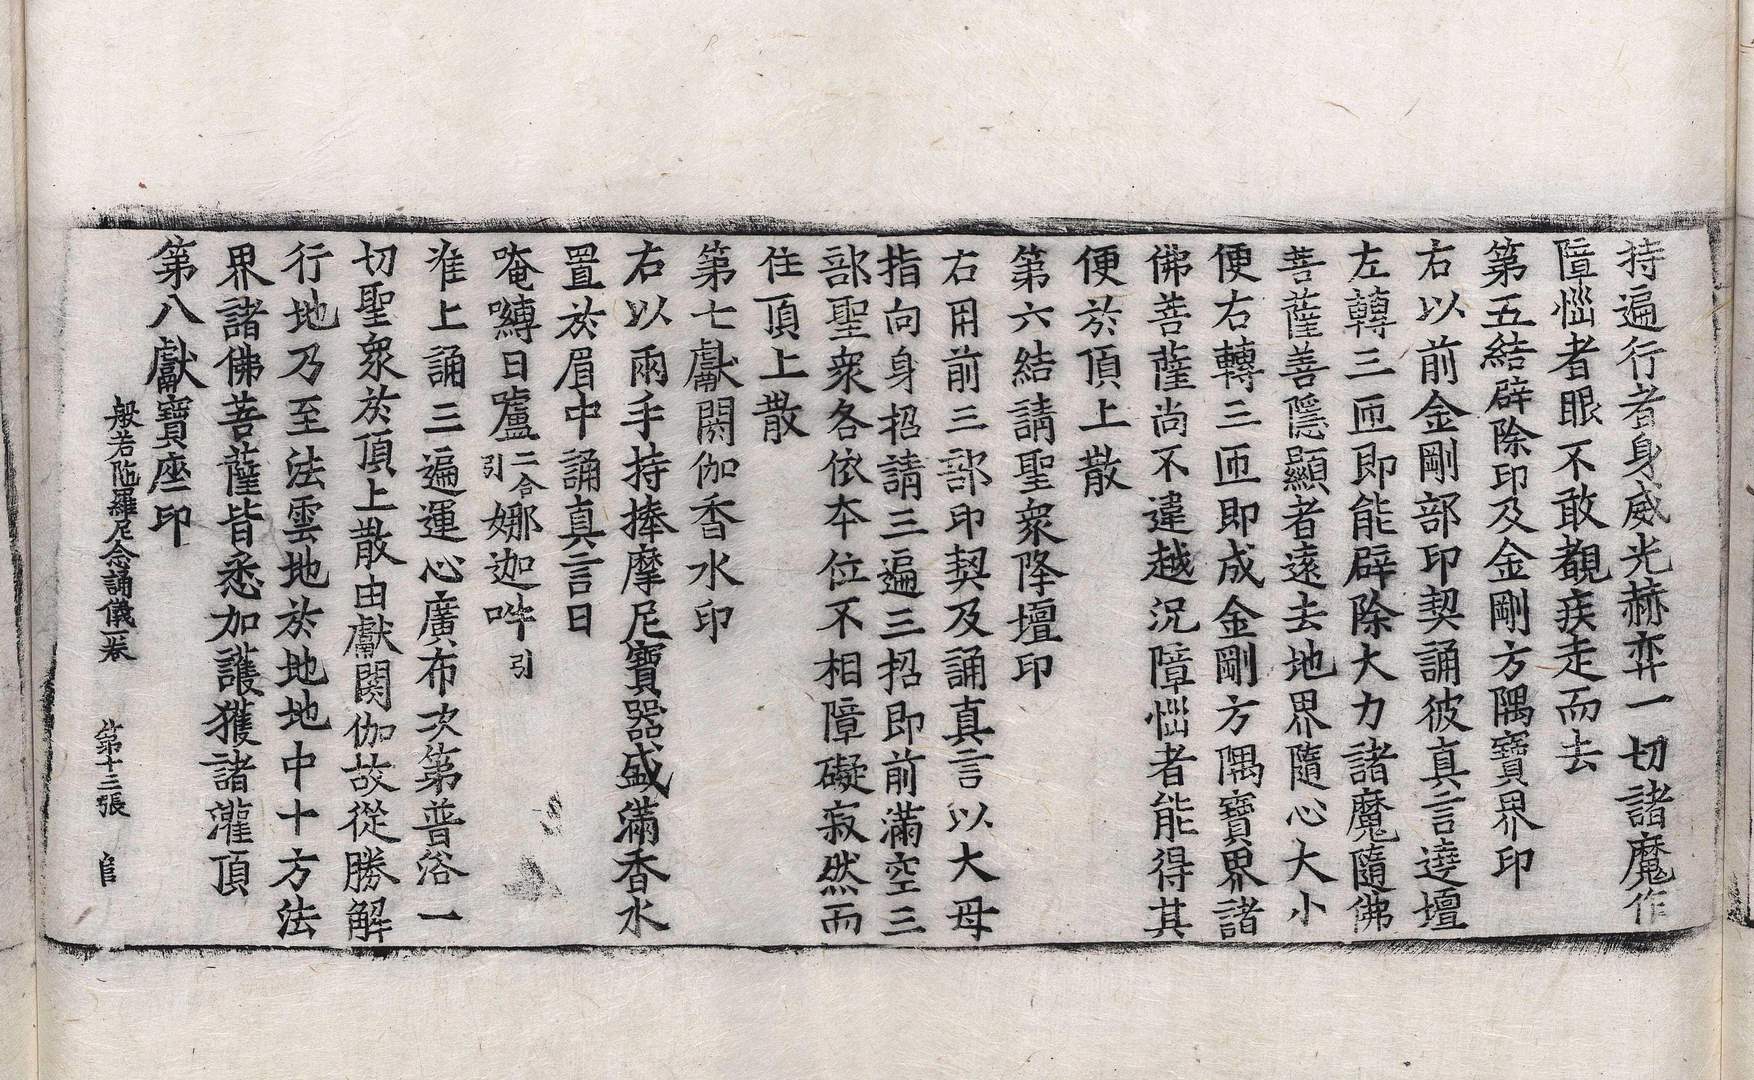 持遍行者身威光赫弈一切諸魔作
障惱者眼不敢覩疾走而去
第五結辟除印及金剛方隅寶界印
右以前金剛部印契誦彼真言遶壇
左轉三匝即能辟除大力諸魔隨佛
菩薩善隱顯者遠去地界隨心大小
便右轉三匝即成金剛方隅寶界諸
佛菩薩尚不違越況障惱者能得其
便於頂上散
第六結請聖衆降壇印
右用前三部印契及誦真言以大母
指向身招請三遍三招即前滿空三
部聖衆各依本位不相障礙寂然而
住頂上散
第七獻閼伽香水印
右以兩手持捧摩尼寶器盛滿香水
置於眉中誦真言曰
唵嚩日嚧二合引娜迦吽引
准上誦三遍運心廣布次第普浴一
切聖衆於頂上散由獻閼伽故從勝解
行地乃至法雲地於地地中十方法
界諸佛菩薩皆悉加護獲諸灌頂
第八獻寶座印
般若陁羅尼念誦儀一卷 第十三張